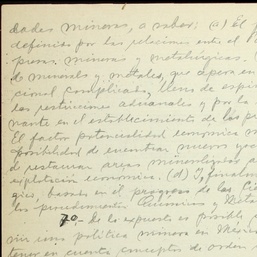 dades mineras, a saber: (a) El
definido por las relaciones entre el
presas mineras y metalúrgicas.
de minerales y metales, que opera en
cional complicada, llena de
las restricciones aduanales y por la
nante en el establecimiento de las
El factor potencialidad económica
posibilidad de encontrar nuevos
de restaurar áreas mineralizadas
explotación económica. (d) Y, finalm
gico, basado en el progreso de las Cie
los procedimientos Químicos y Meta
7o.- De lo expuesto es posible
mir como política minera en México
tener en cuenta conceptos de orden